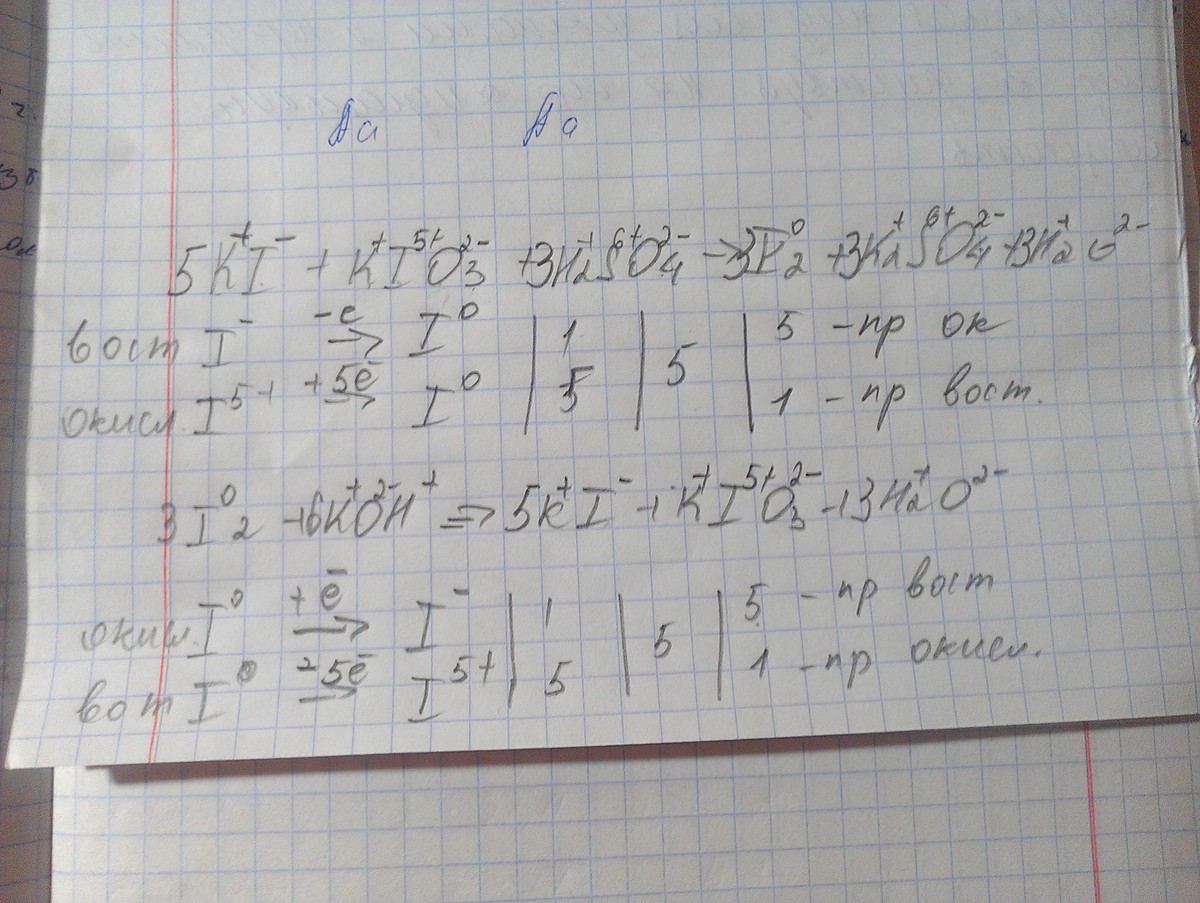 5K⁺I⁻ + K⁺I⁵⁺O₃²⁻ + 3H₂⁺S⁶⁺O₄²⁻ → 3I₂⁰ + 3K₂⁺S⁶⁺O₄²⁻ + 3H₂⁺O²⁻
вост I⁻ -e→ I⁰ | 1 | 5 | 5 - пр ок
окисл. I⁵⁺ +5e̅→ I⁰ | 5 | | 1 - пр вост.
3I⁰₂ + 6K⁺O²⁻H⁺ => 5K⁺I⁻ + K⁺I⁵⁺O₃²⁻ + 3H₂⁺O²⁻
окисл. I⁰ +e̅→ I⁻ | 1 | 5 | 5 - пр вост
вот I⁰ -5e̅→ I⁵⁺ | 5 | | 1 - пр окисл.